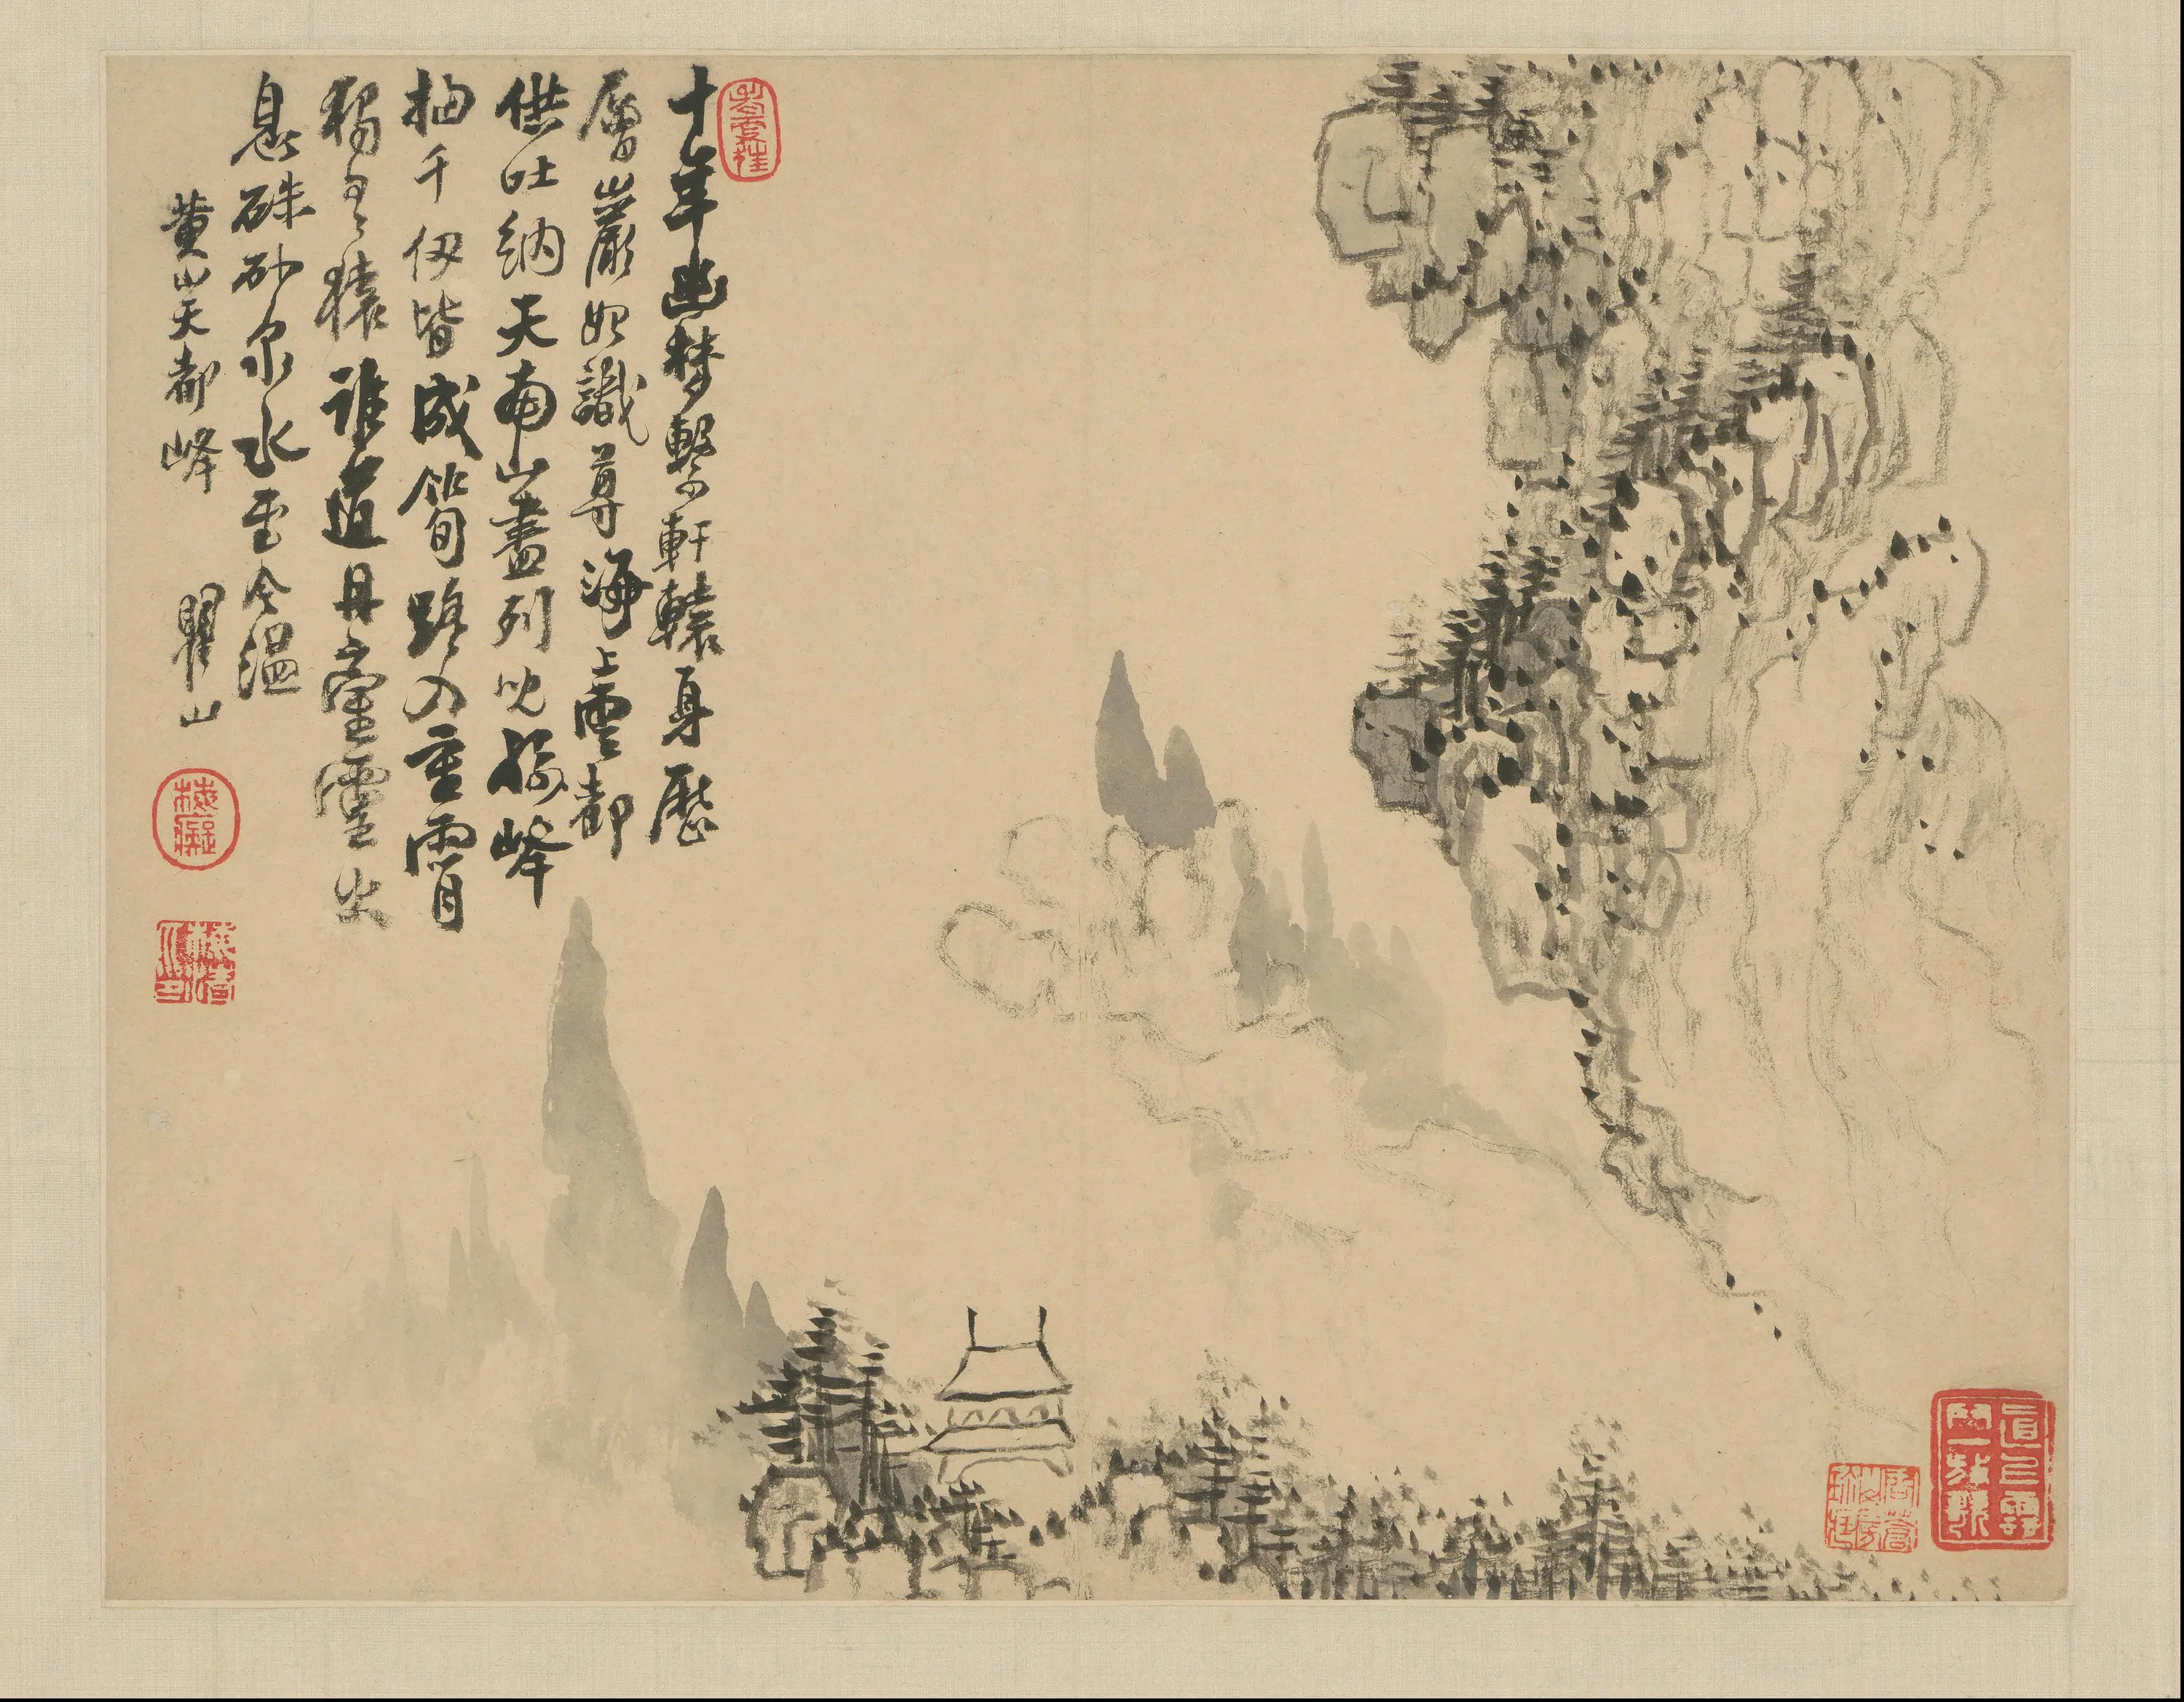 十年幽夢繫軒轅身歷
層巖始識尊海上雲都
供吐納天南山盡列兒孫峰
抽千仞皆成筍路入重霄
獨有猿誰道丹臺靈火
息硃砂泉水至今溫
黃山天都峰
瞿山